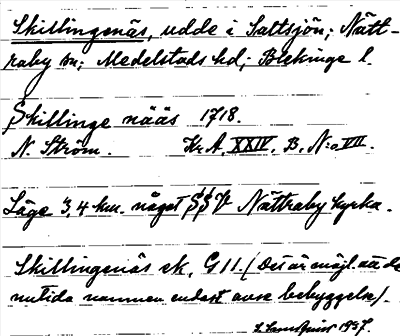 Skillingenäs, udde i Saltsjön; Nätt-
raby sn; Medelstads hd; Blekinge l.
Skillinge nääs 1718.
N. Ström. Kr. A. XXIV. B. N:o VII.
Läge 3,4 km. något SSV Nättraby kyrka.
Skillingenäs ek. G 11. (Det är möjl. att de
nutida namnen endast avse bebyggelse).
1927.